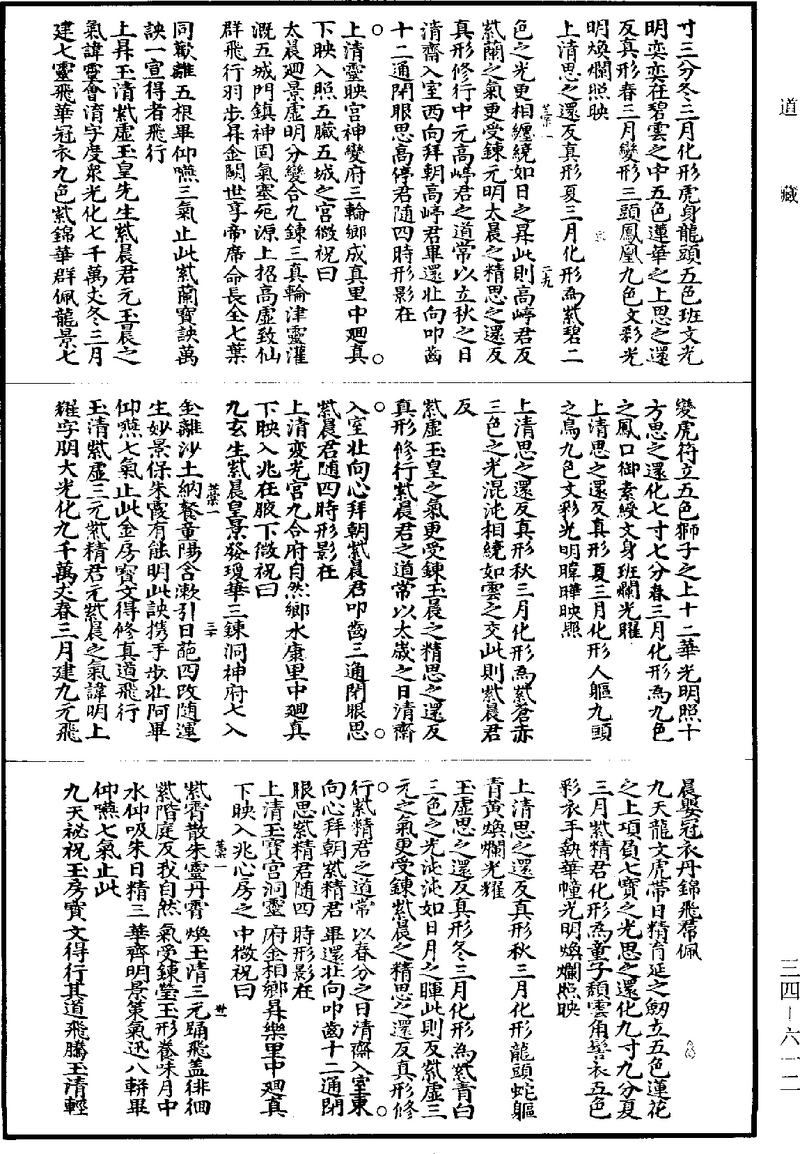 道藏
寸三分冬三月化形虎身龍頭五色班文光
明奕奕在碧雲之中五色蓮華之上思之還
反真形春三月變形三頭鳳凰九色文彩光
明煥爛照映
上清思之還反真形夏三月化形為紫碧二
色之光更相纏繞如日之昇此則高崢君反
紫蘭之氣更受鍊元明太晨之精思之還反
真形修行中元高崢君之道常以立秋之日
清齋入室西向拜朝高崢君畢還壯向叩齒
十二通閉眼思高停君随四時形影在
上清靈映宮神變府三輪鄉成真里中廻真
下映入照五臟五城之宮微祝曰
太晨廻景虛明分變合九鍊三真輪津靈灌
溉五城門鎮神固氣塞死源上招高虛致仙
群飛行羽步昇金闕世享帝席命長全七葉
同歡離五根畢仰嚥三氣止此紫蘭寶訣萬
訣一宣得者飛行
上昇玉清紫虛玉皇先生紫晨君元玉晨之
氣諱靈會清字度衆光化七千萬丈冬三月
建七靈飛華冠衣九色紫錦華群佩龍景七
變虎符立五色獅子之上十二華光明照十
方思之還化七寸七分春三月化形為九色
之鳳口御素綬文身班爛光曜
上清思之還反真形夏三月化形人軀九頭
之鳥九色文彩光明暐曄映照
上清思之還反真形秋三月化形為紫蒼赤
三色之光混沌相繞如雲之交此則紫晨君
反
紫虛玉皇之氣更受鍊玉晨之精思之還反
真形修行紫晨君之道常以太歲之日清齋
入室壯向心拜朝紫晨君叩齒三通閉眼思
紫晨君随四時形影在
上清變光宮九合府自然鄉水康里中廻真
下映入兆在腋下微祝曰
九玄生紫晨皇景發瓊華三鍊洞神府七入
金離沙土納餐童陽含漱引日葩四改随運
生妙景保朱霞有能明此訣携手步壯阿畢
仰嚥七氣止此金房寶文得修真道飛行
玉清紫虛三元紫精君元紫晨之氣諱明上
耀字朗大光化九千萬丈春三月建九元飛
晨嬰冠衣丹錦飛帬佩
九天龍文虎帶日精育延之劒立五色蓮花
之上項負七寶之光思之還化九寸九分夏
三月紫精君化形為童子頹雲角髻衣五色
彩衣手執華幢光明煥爛照映
上清思之還反真形秋三月化形龍頭蛇軀
青黃煥爛光耀
玉虛思之還反真形冬三月化形為紫青白
三色之光沌沌如日月之暉此則反紫虛三
元之氣更受鍊紫晨之精思之還反真形修
行紫精君之道常以春分之日清齋入室東
向心拜朝紫精君畢還壯向叩齒十二通閉
眼思紫精君随四時形影在
上清玉寶宮洞靈府金相鄉昇樂里中廻真
下映入兆心房之中微祝曰
紫霄散朱靈丹霄煥玉清三元踊飛蓋徘徊
紫階庭反我自然氣受鍊瑩玉形養味月中
水仰吸朱日精三華齊明景策氣迅八軿畢
仰嚥七氣止此
九天祕祝玉房寶文得行其道飛騰玉清輕
三四－六一二